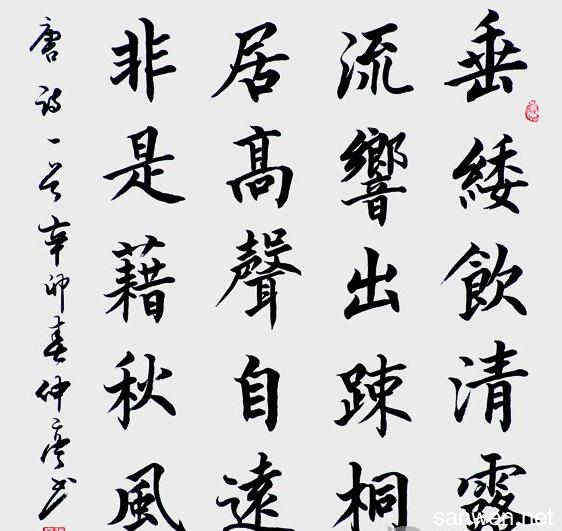 垂緌飲清露
流響出踈桐
居髙聲自遠
非是藉秋風
唐诗一首辛卯春仲书
sanwen.net